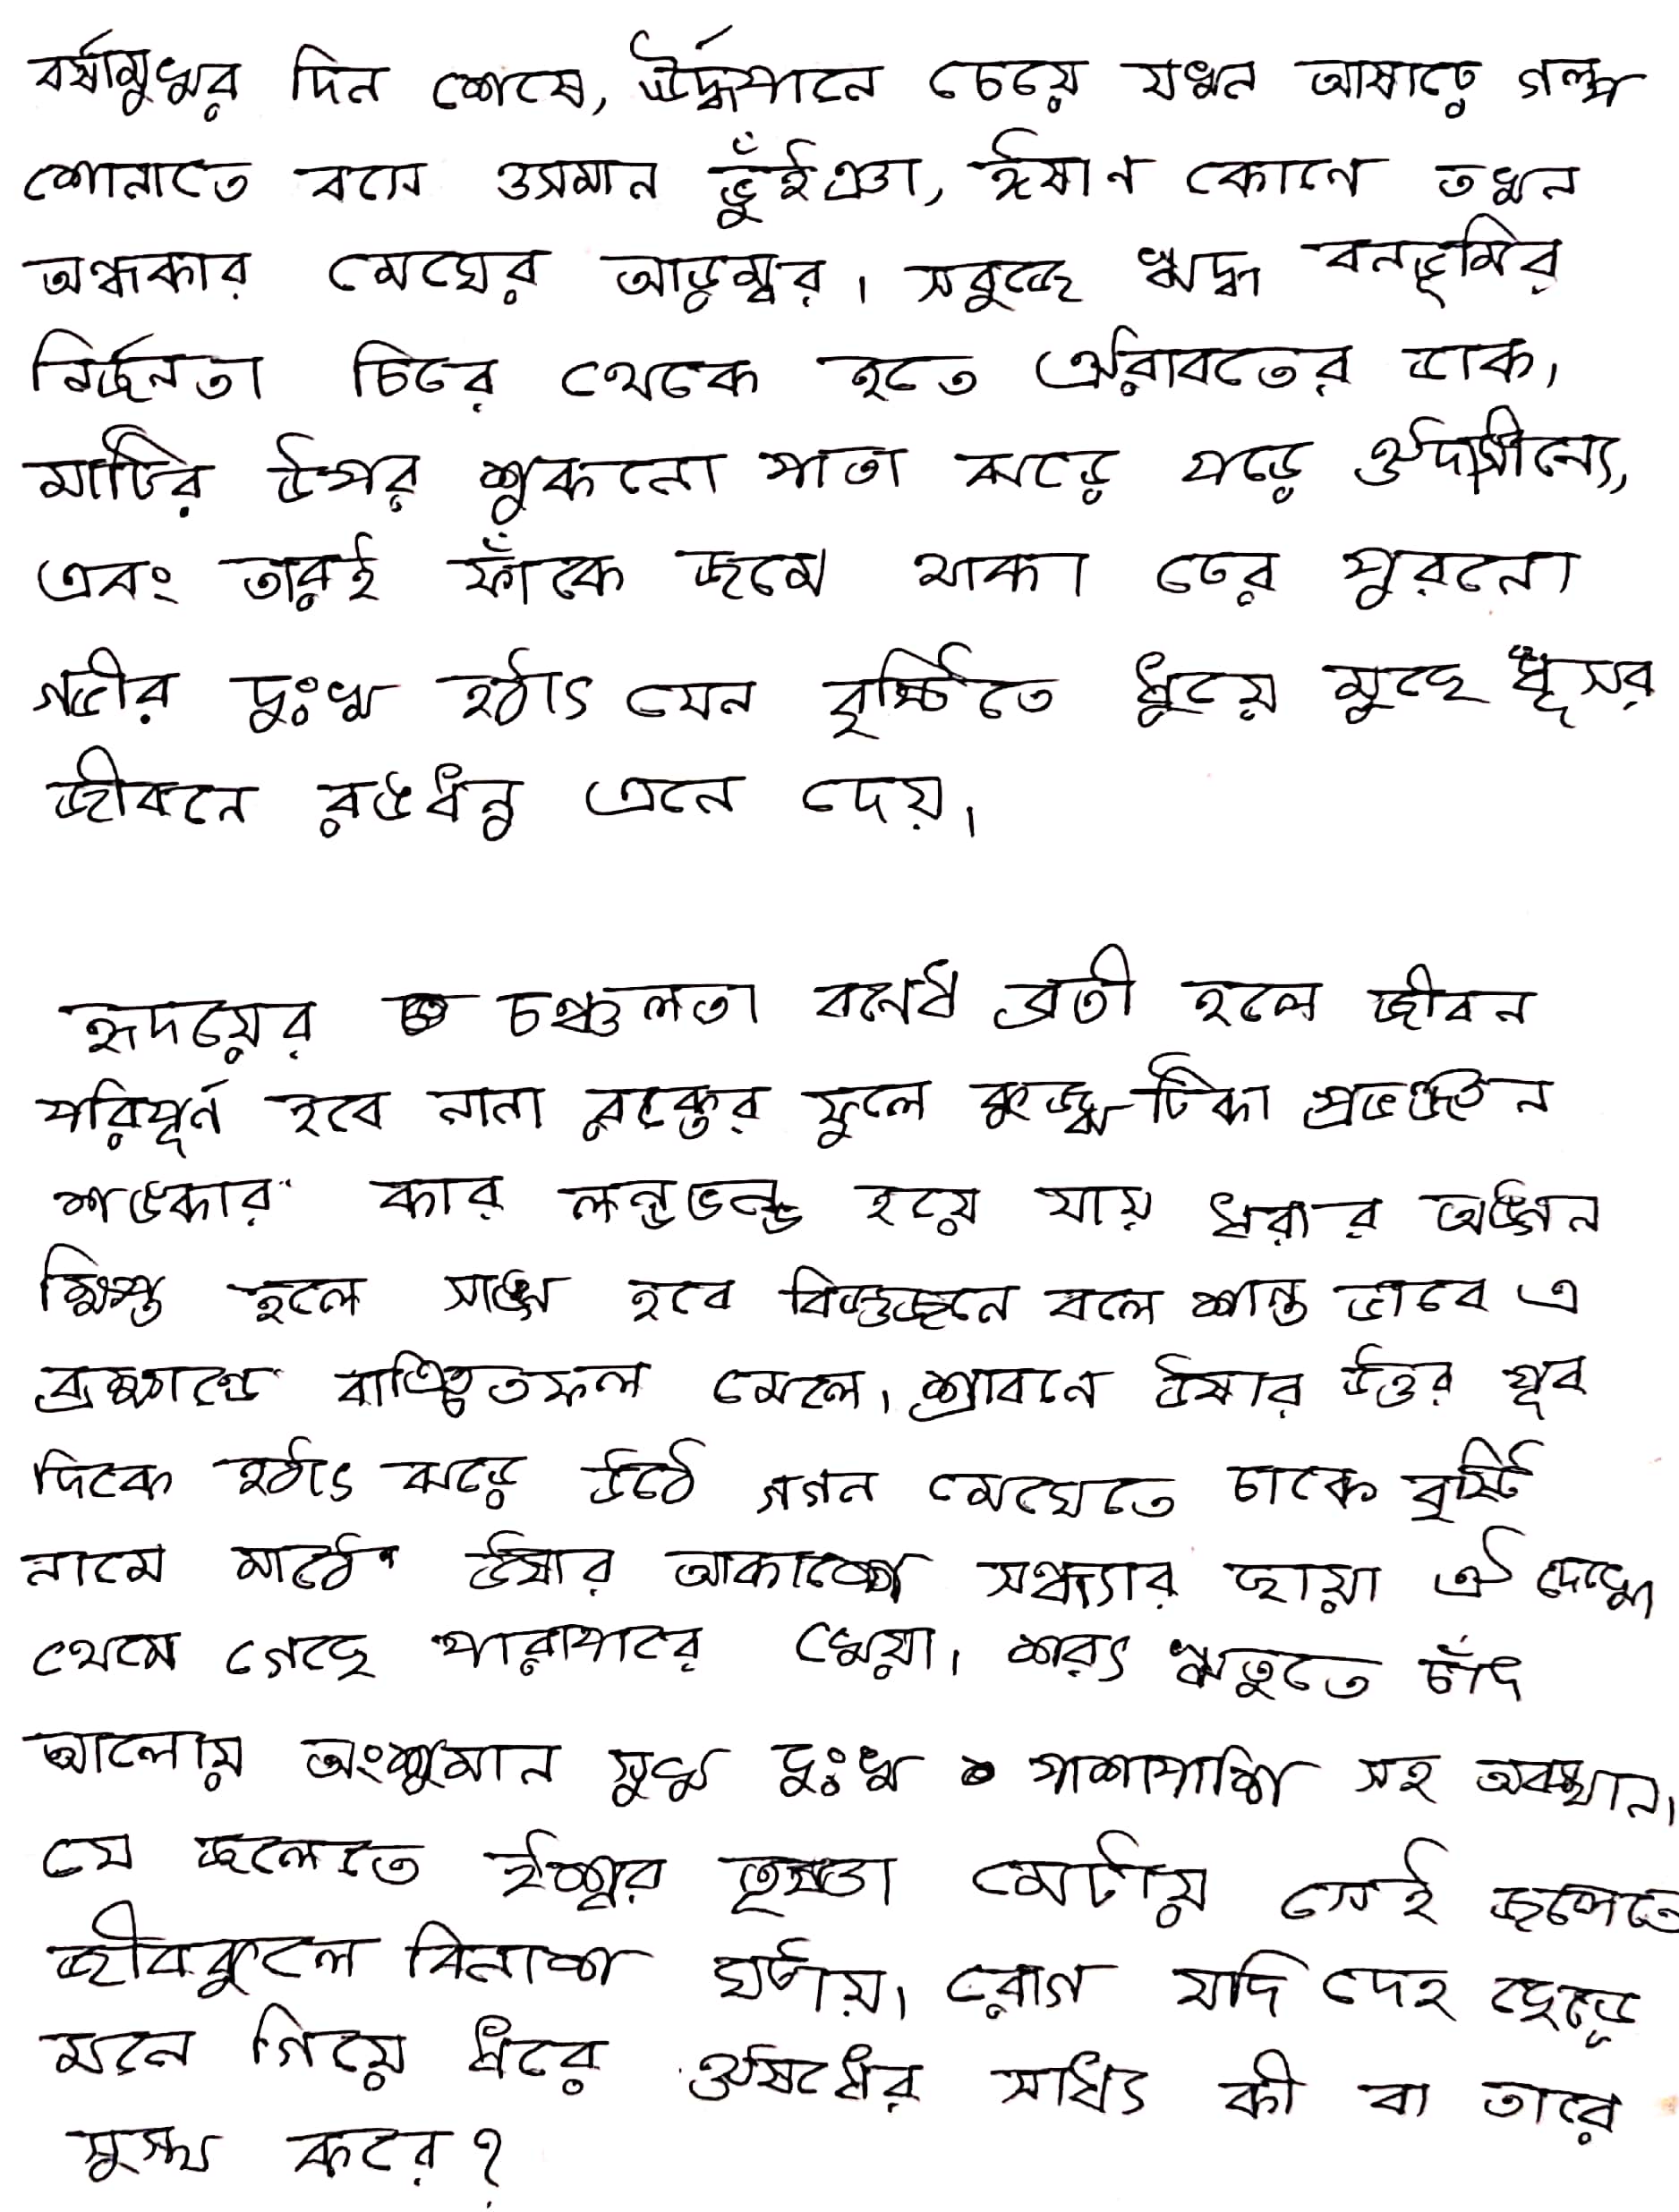 বর্ষামুখর দিন শেষে, ঊর্দ্ধপানে চেয়ে যখন আষাঢ়ে গল্প
শোনাতে বসে ওসমান ভুঁইঞা, ঈষাণ কোণে তখন
অন্ধকার মেঘের আড়ম্বর। সবুজে ঋদ্ধ বনভূমির
নির্জনতা চিরে থেকে হতে ঐরাবতের ডাক,
মাটির উপর শুকনো পাতা ঝড়ে পড়ে ঔদাসীন্যে,
এবং তারই ফাঁকে জমে থাকা ঢের পুরনো
গভীর দুঃখ হঠাৎ যেন বৃষ্টিতে ধুয়ে মুছে ধূসর
জীবনে রঙধনু এনে দেয়।
হৃদয়ের চঞ্চলতা বন্ধে ব্রতী হলে জীবন
পরিপূর্ণ হবে নানা রঙের ফুলে কুজ্ঝটিকা প্রভঞ্জন
শঙকার কার লন্ডভন্ড হয়ে যায় ধরার অঙ্গন
ক্ষিপ্ত হলে সাঙ্গ হবে বিজ্ঞজনে বলে শান্ত ভাবে এ
ব্রহ্মাণ্ডে বাঞ্ছিতফল মেলে। শ্রাবনে ঊষার উত্তর পূব
দিকে হঠাৎ ঝড়ে উঠে গগন মেঘেতে ঢাকে বৃষ্টি
নামে মাঠে ঊষার আকাশে সন্ধ্যার ছায়া ঐ দেখো
থেমে গেছে পারাপারে খেয়া। শরৎ ঋতুতে চাঁদ
আলোয় অংশুমান সুখ দুঃখ পাশাপাশি সহ অবস্থান।
যে জলেতে ঈশ্বর তৃষ্ণা মেটায় সেই জলেতে
জীবকুলে বিনাশ ঘটায়। রোগ যদি দেহ ছেড়ে
মনে গিয়ে ধরে ঔষধের সাধ্য কী বা তারে
সুস্থ করে?